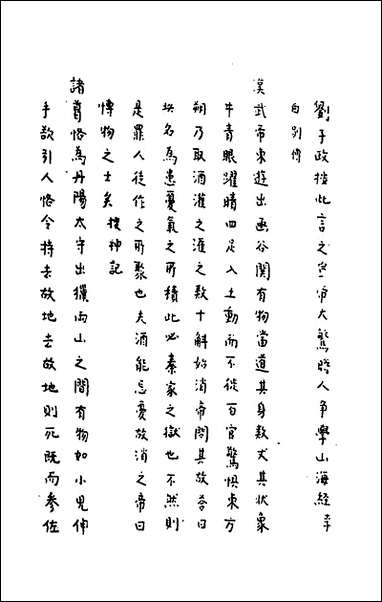 劉子政按此言之宣帝大驚時人爭學山海經李
白別傳
漢武帝東遊出函谷關有物當道其身數丈其狀象
牛青眼躍睛四足入土動而不徙百官驚惧東方
朔乃取酒灌之灌之數十斛始消帝問其故答曰
此名為患憂氣之所積此必秦家之獄也不然則
是罪人徒作之所聚也夫酒能忘憂故消之帝曰
博物之士矣搜神記
諸葛恪為丹陽太守出獵兩山之間有物如小兒伸
手欲引人恪令持去故地去故地則死既而參佐